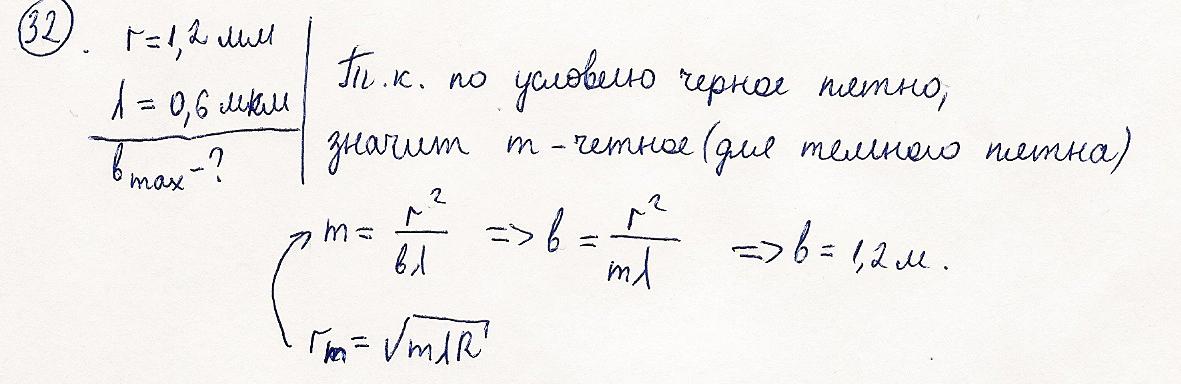 32. r = 1,2 мм
λ = 0,6 мкм
b max - ?
Т.к. по условию черное пятно,
значит m - четное (для темного пятна)
m = r² / bλ => b = r² / mλ => b = 1,2 м.
rm = √mλR